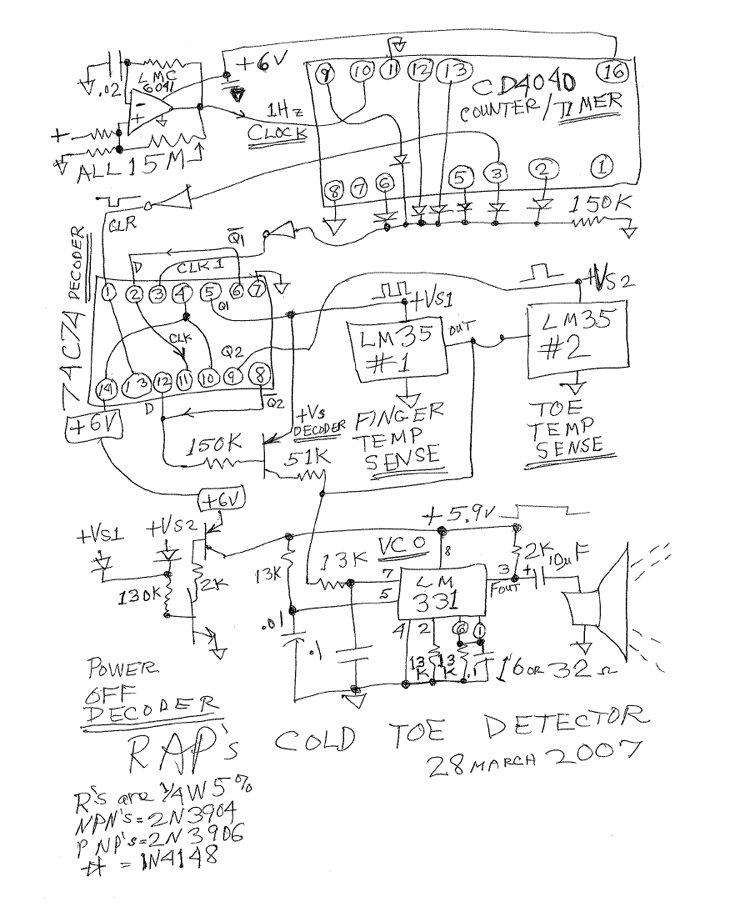 .02
LMC
6041
+6V
ALL 15M
1Hz
CLOCK
9 10 11 12 13 16
CD4040
COUNTER/TIMER
8 7 6 5 3 2 1
150K
CLR
74C74 DECODER
D Q1
CLK1
1 2 3 4 5 6 7
Q1
CLK
Q2
14 13 12 11 10 9 8
D Q2
+6V
+VS1
LM35
#1
OUT
FINGER
TEMP
SENSE
+VS2
LM35
#2
TOE
TEMP
SENSE
+Vs
DECODER
150K
51K
+6V
+VS1 +VS2
130K
2K
POWER
OFF
DECODER
+5.9V
VCO
13K
13K
.01
.1
LM
331
7 5 8 3 4 2 6 1
FOUT
2K
+ 10uF
13K
13K
.1
16 OR 32 Ω
RAP's COLD TOE DETECTOR
28 MARCH 2007
R's are 1/4W 5%
NPN's = 2N3904
PNP's = 2N3906
= 1N4148